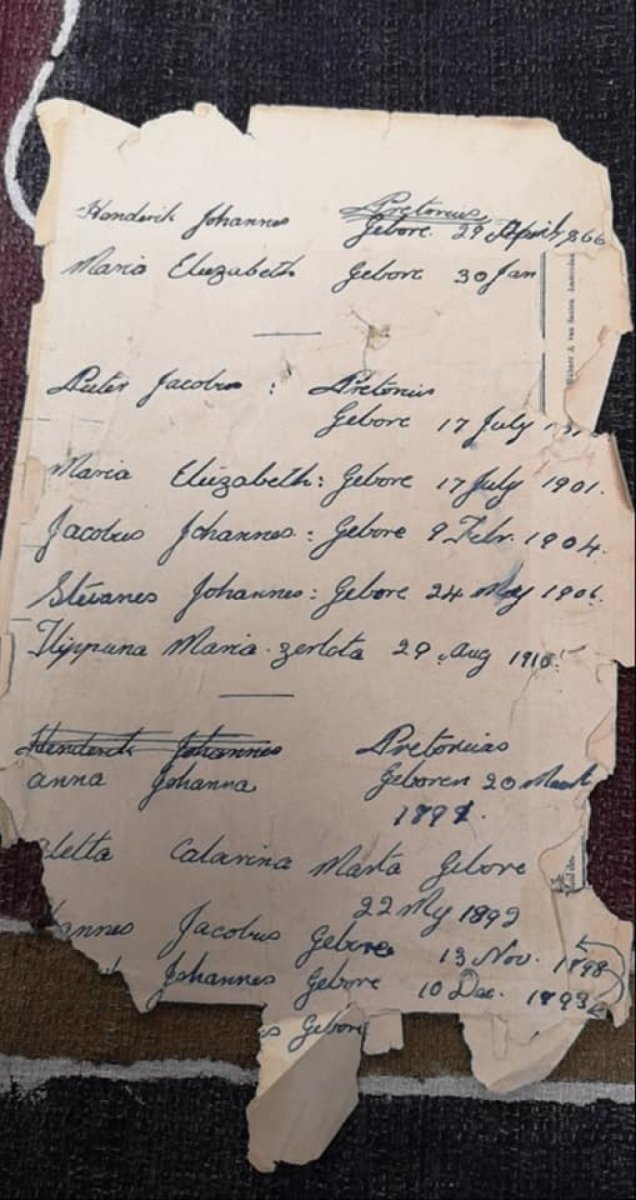 Henderik Johannes Pretorius
Gebore. 29 April 1866
Maria Eliezabeth Gebore 30 Jan
Pieter Jacobus : Pretorius
Gebore 17 July
Maria Eliezabeth: Gebore 17 July 1901.
Jacobus Johannes: Gebore 9 Febr. 1904.
Stevanes Johannes: Gebore 24 My 1906.
Flippuna Maria zerlota 29 Aug 1910
Henderik Johannes Pretorius
anna Johanna Geboren 20 Maart
1891.
letta Catarina Marta Gebore
22 My 1892
annes Jacobus Gebore 13 Nov. 1898
Johannes Gebore 10 Dec. 1893
es Gebore